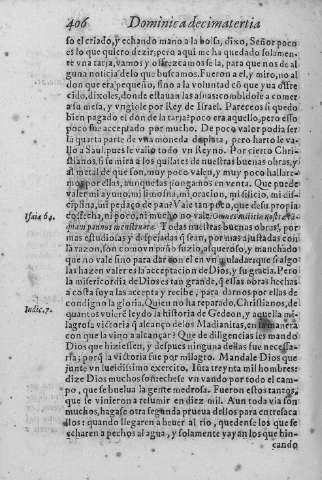 406 Dominica decimatertia
so el criado, y echando mano a la bolsa, dixo, Señor poco
es lo que quiero dezir; pero aqui me ha quedado solamen-
te vna tarja, vamos y ofrezcamosela, para que nos de al-
guna noticia de lo que buscamos. Fueron a el, y miro, no al
don que era pequeño, sino a la voluntad cõ que y ua ofre
cido, dixoles, donde estauan las asnas: combidole a comer
a su mesa, y vngiole por Rey de Israel. Pareceos si quedo
bien pagado el don de la tarja? poco era aquello, pero esso
poco fue acceptado por mucho. De poco valor podia ser
la quarta parte de vna moneda de plata, pero harto le va-
lio a Saul, pues le valio todo vn Reyno. Por cierto Chri-
stianos, si se mira a los quilates de nuestras buenas obras, y
al metal de que son, muy poco valen, y muy poco hallare-
mos por ellas, aunque las pongamos en venta. Que puede
valer mi ayuno, mi limosna, mi oracion, mi silicio, mi dis-
ciplina, mi pedaço de pan? Vale tan poco, que de su propia
Isaiæ 64. cosecha, ni poco, ni mucho no vale.
quam pannus menstruatæ. Todas nuestras buenas obras, por
mas estudiosas y despertadas que sean, por mas ajustadas con
la razon, son como vn paño suzio, asqueroso, y manchido
que no vale sino para dar con el en vn muladar: que si algo
las hazen valer es la acceptacion de Dios, y su gracia. Pero
la misericordia de Dios es tan grande, q̃ essas obras hechas
a costa suya las accepta y recibe, para darnos por ellas de
condigno la gloria. Quien no ha reparado, Christianos, de
Iudic. 7. quantos vuiere leydo la historia de Gedeon, y aquella mi-
lagrosa victoria q̃ alcanço de los Madianitas, en la manera
con que la vino a alcançar? Que de diligencias les mando
Dios que hiziessen, y despues ninguna dellas fue necessa-
ria; porq̃ la victoria fue por milagro. Mandale Dios que
junte vn luzidissimo exercito. Iũta treynta mil hombres:
dize Dios muchos son; echese vn vando por todo el cam-
po, que se buelua la gente medrosa. Fueron estos tantos,
que se vinieron a resumir en diez mil. Aun toda via son
muchos, hagase otra segunda prueua dellos para entresaca
llos: quando llegaren a beuer al rio, quedense los que se
echaren a pechos al agua, y solamente vayan los que hin-
cando